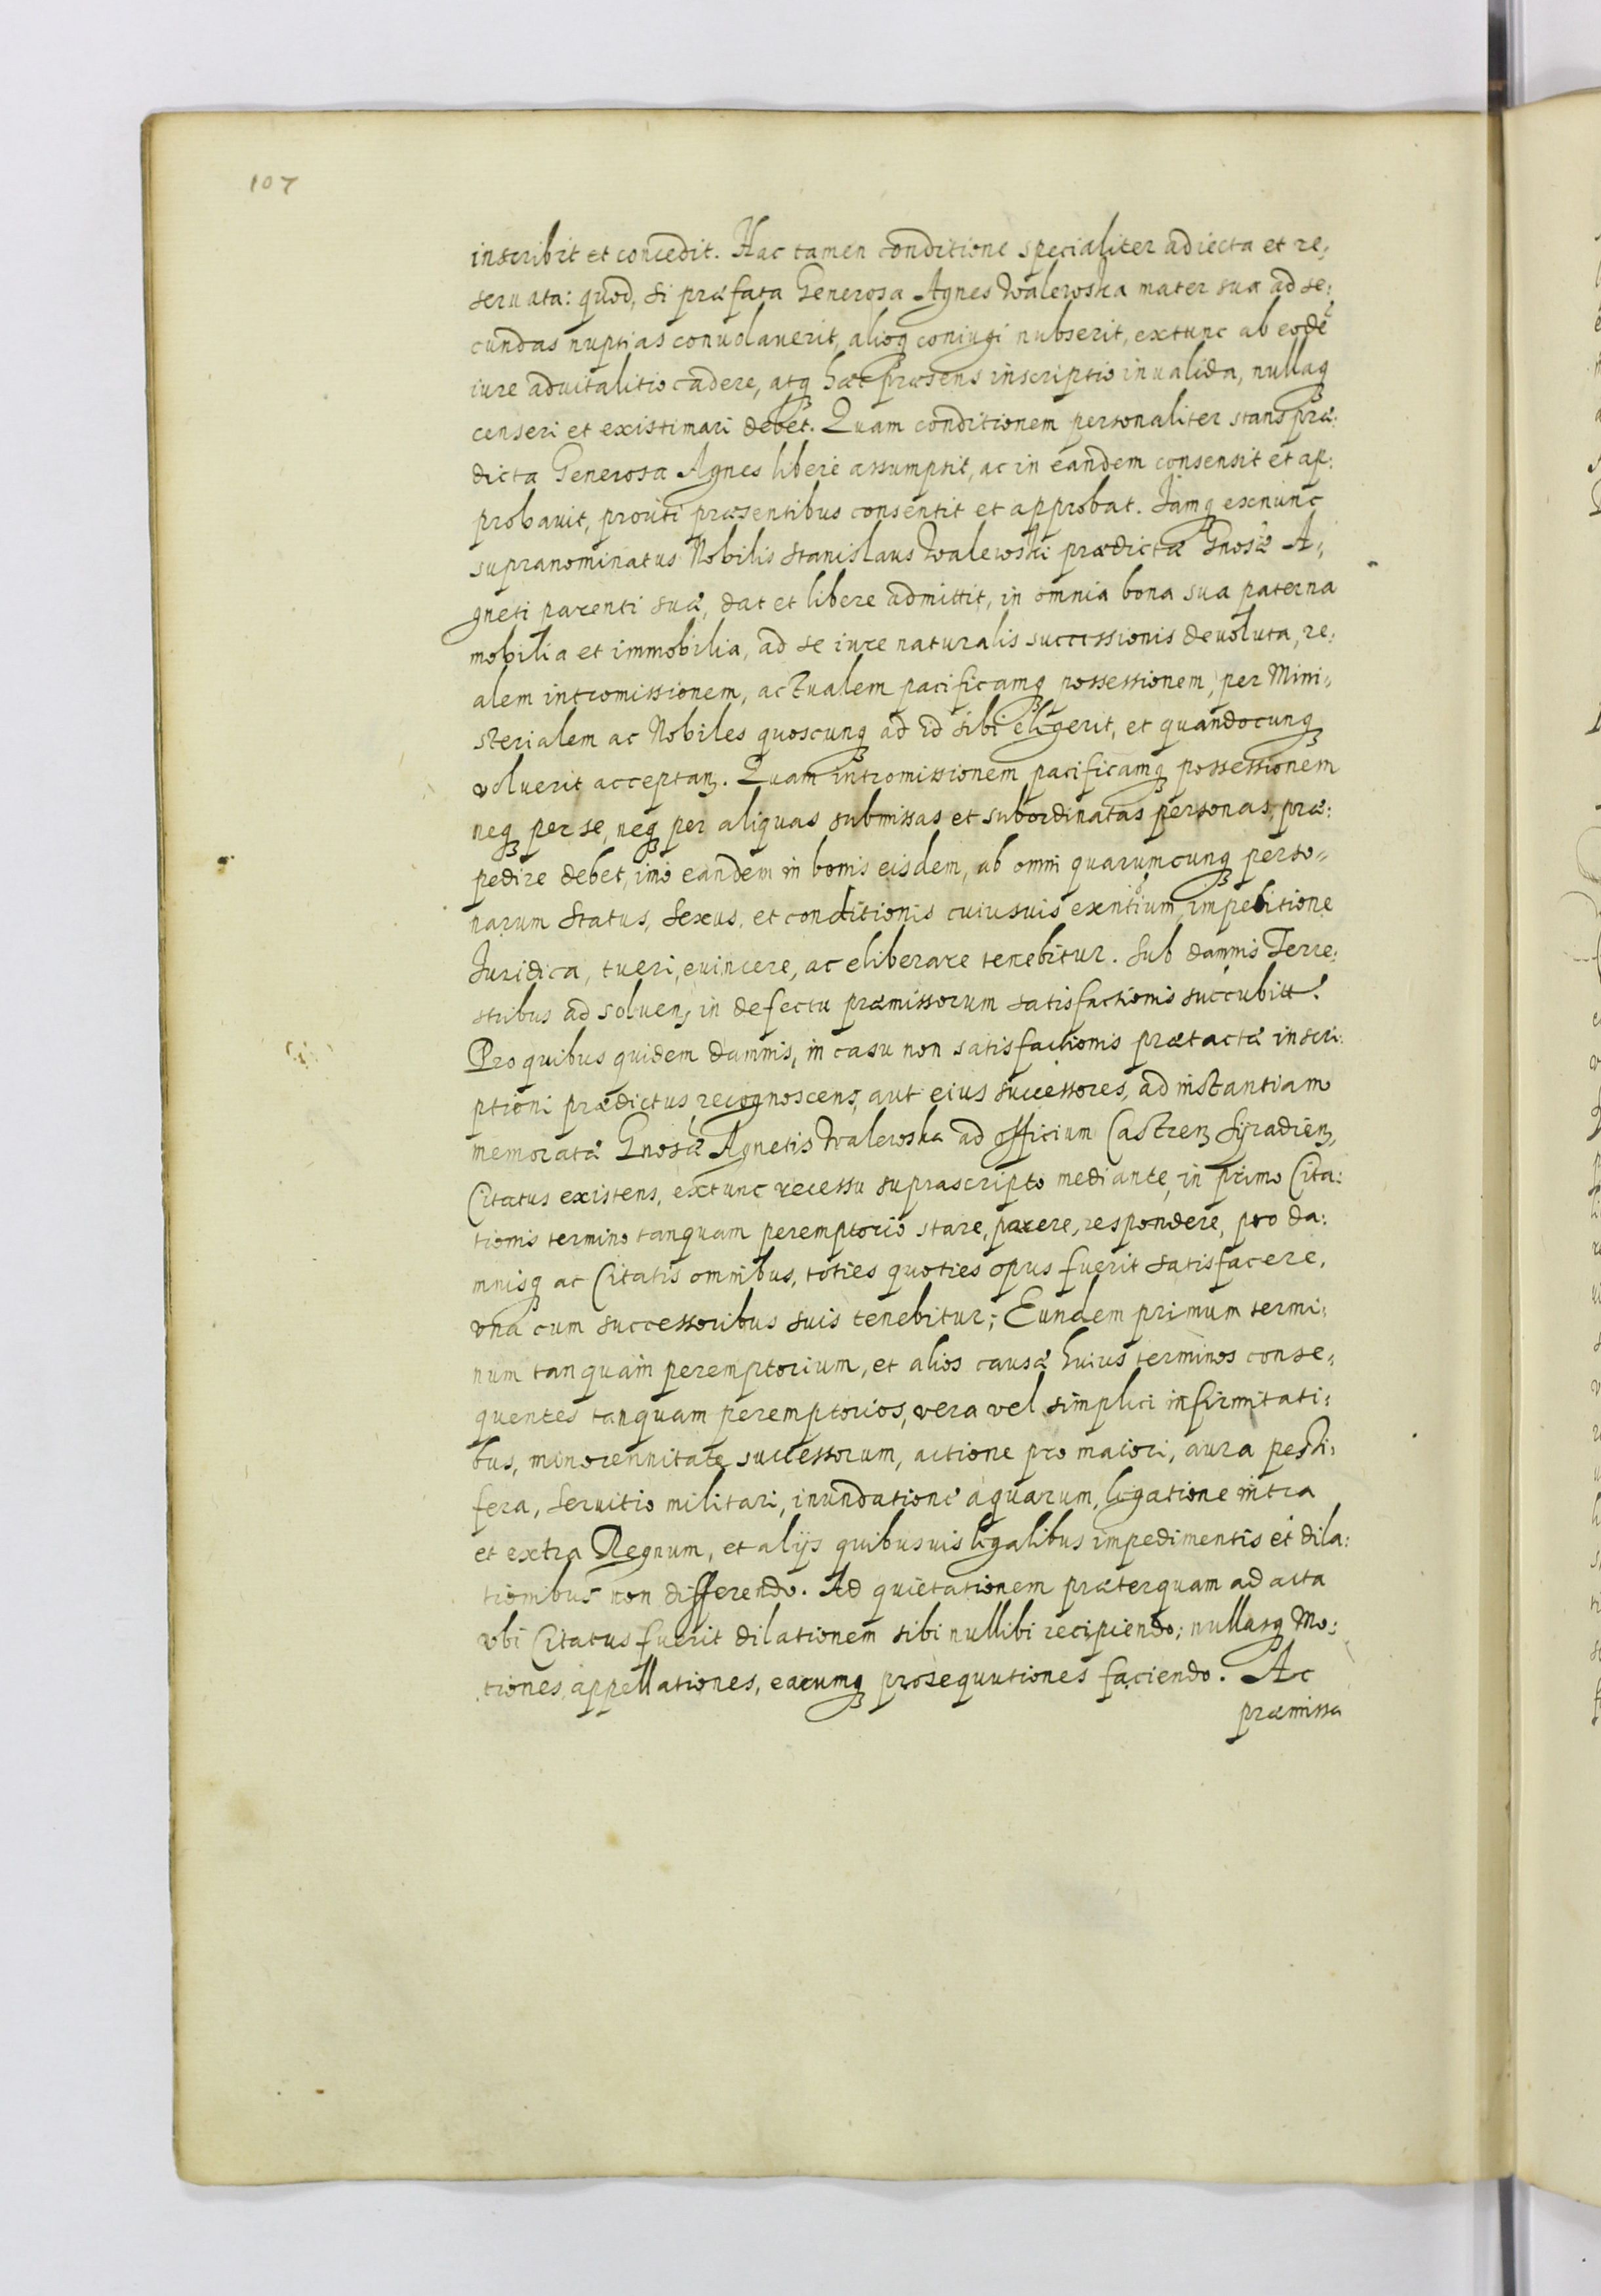 107
inscribit et concedit. Hac tamen conditione specialiter adiecta et re:
seruata: quod, si præfata Generosa Agnes Walewska mater sua ad se:
cundas nuptias conuolauerit, alioq coniugi nubserit, extunc ab eodē
iure aduitalitio cadere, atq hæc præsens inscriptio inualida, nullaq
censeri et existimari debet. Quam conditionem personaliter stans præ:
dicta Generosa Agnes libere assumpsit, ac in eandem consensit et ap:
probauit, prouti præsentibus consentit et approbat. Iamq exnunc
supranominatus Nobilis Stanislaus Walewski prædictæ Gnosæ A:
gneti parenti suæ, dat et libere admittit, in omnia bona sua paterna
mobilia et immobilia, ad se iure naturalis successionis deuoluta, re:
alem intromissionem, actualem pacificamq possessionem, per Mini:
sterialem ac Nobiles quoscunq ad id sibi eligerit, et quandocunq
voluerit acceptan. Quam intromissionem pacificamq possessionem
neq per se, neq per aliquas submissas et subordinatas personas, præ:
pedire debet, imo eandem in bonis eisdem, ab omni quarumcunq perso:
narum status, sexus, et conditionis cuiusuis exntium, impeditione
Iuridica, tueri, euincere, ac eliberare tenebitur. Sub damnis Terre:
stribus ad soluen, in defectu præmissorum satisfactionis succubitt.
Pro quibus quidem damnis, in casu non satisfactionis prætactæ inscri:
ptioni prædictus recognoscens, aut eius successores, ad instantiam
memoratæ Gnosæ Agnetis Walewska ad officium Castren Syradien,
Citatus existens, extunc recessu suprascripto mediante, in primo Cita:
tionis termino tanquam peremptorio stare, parere, respondere, pro da:
mnisq ac Citatis omnibus, toties quoties opus fuerit satisfacere,
vna cum successoribus suis tenebitur; Eundem primum termi:
num tanquam peremptorium, et alios causæ huius terminos conse:
quentes tanquam peremptorios, vera vel simplici infirmitati:
bus, minorennitate successorum, actione pro maiori, aura pesti:
fera, seruitio militari, inundatione aquarum, legatione intra
et extra Regnum, et alijs quibusuis legalibus impedimentis et dila:
tionibus non differendo. Ad quietationem præterquam ad acta
vbi Citatus fuerit dilationem sibi nullibi recipiendo; nullasq Mo:
tiones, appellationes, earumq prosequutiones faciendo. Ac
præmissa